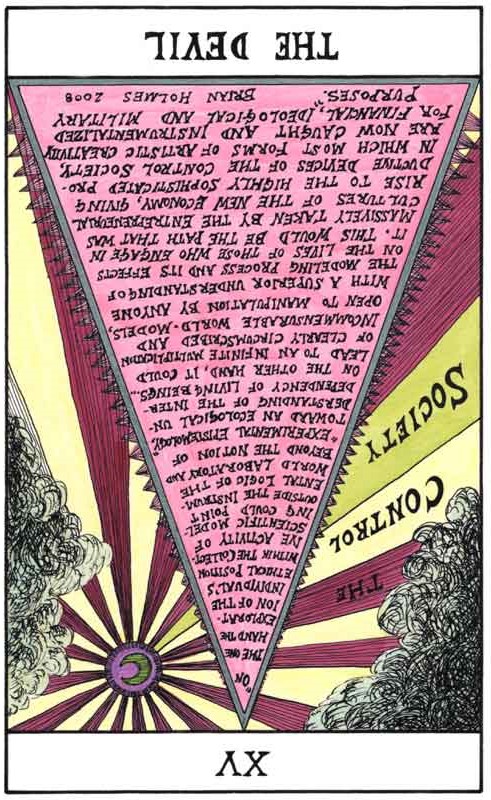 XV
"ON
THE ONE
HAND THE
EXPLORAT-
ION OF THE
INDIVIDUAL'S
ETHICAL POSITION
WITHIN THE COLLECT-
IVE ACTIVITY OF
SCIENTIFIC MODEL-
ING COULD POINT
OUTSIDE THE INSTRUM-
ENTAL LOGIC OF THE
WORLD LABORATORY AND
BEYOND THE NOTION OF
"EXPERIMENTAL EPISTEMOLOGY,"
TOWARD AN ECOLOGICAL UN-
DERSTANDING OF THE INTER-
DEPENDENCY OF LIVING BEINGS...
ON THE OTHER HAND, IT COULD
LEAD TO AN INFINITE MULTIPLICATION
OF CLEARLY CIRCUMSCRIBED AND
INCOMMENSURABLE WORLD-MODELS,
OPEN TO MANIPULATION BY ANYONE
WITH A SUPERIOR UNDERSTANDING OF
THE MODELING PROCESS AND ITS EFFECTS
ON THE LIVES OF THOSE WHO ENGAGE IN
IT. THIS WOULD BE THE PATH THAT WAS
MASSIVELY TAKEN BY THE ENTREPRENEURIAL
CULTURES OF THE NEW ECONOMY, GIVING
RISE TO THE HIGHLY SOPHISTICATED PRO-
DUCTIVE DEVICES OF THE CONTROL SOCIETY,
IN WHICH MOST FORMS OF ARTISTIC CREATIVITY
ARE NOW CAUGHT AND INSTRUMENTALIZED
FOR FINANCIAL, IDEOLOGICAL AND MILITARY
PURPOSES."
BRIAN HOLMES 2008
THE
CONTROL
SOCIETY
THE DEVIL